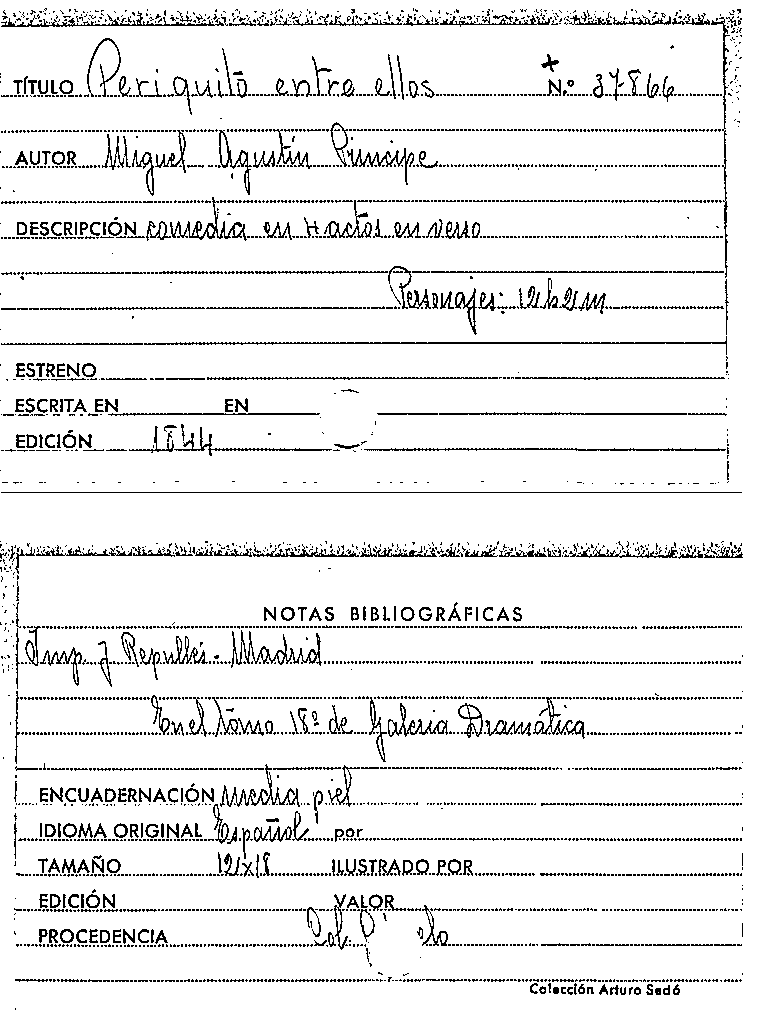 TÍTULO Periquito entre ellos + N.º 37866
AUTOR Miguel Agustín Príncipe
DESCRIPCIÓN comedia en 4 actos en verso
Personajes: 12h 2m
ESTRENO
ESCRITA EN EN
EDICIÓN 1844
NOTAS BIBLIOGRÁFICAS
Imp. J Repullés - Madrid
En el tomo 18º de Galeria Dramática
ENCUADERNACIÓN media piel
IDIOMA ORIGINAL Español por
TAMAÑO 12x18 ILUSTRADO POR
EDICIÓN VALOR
PROCEDENCIA Col.
Colección Arturo Sedó